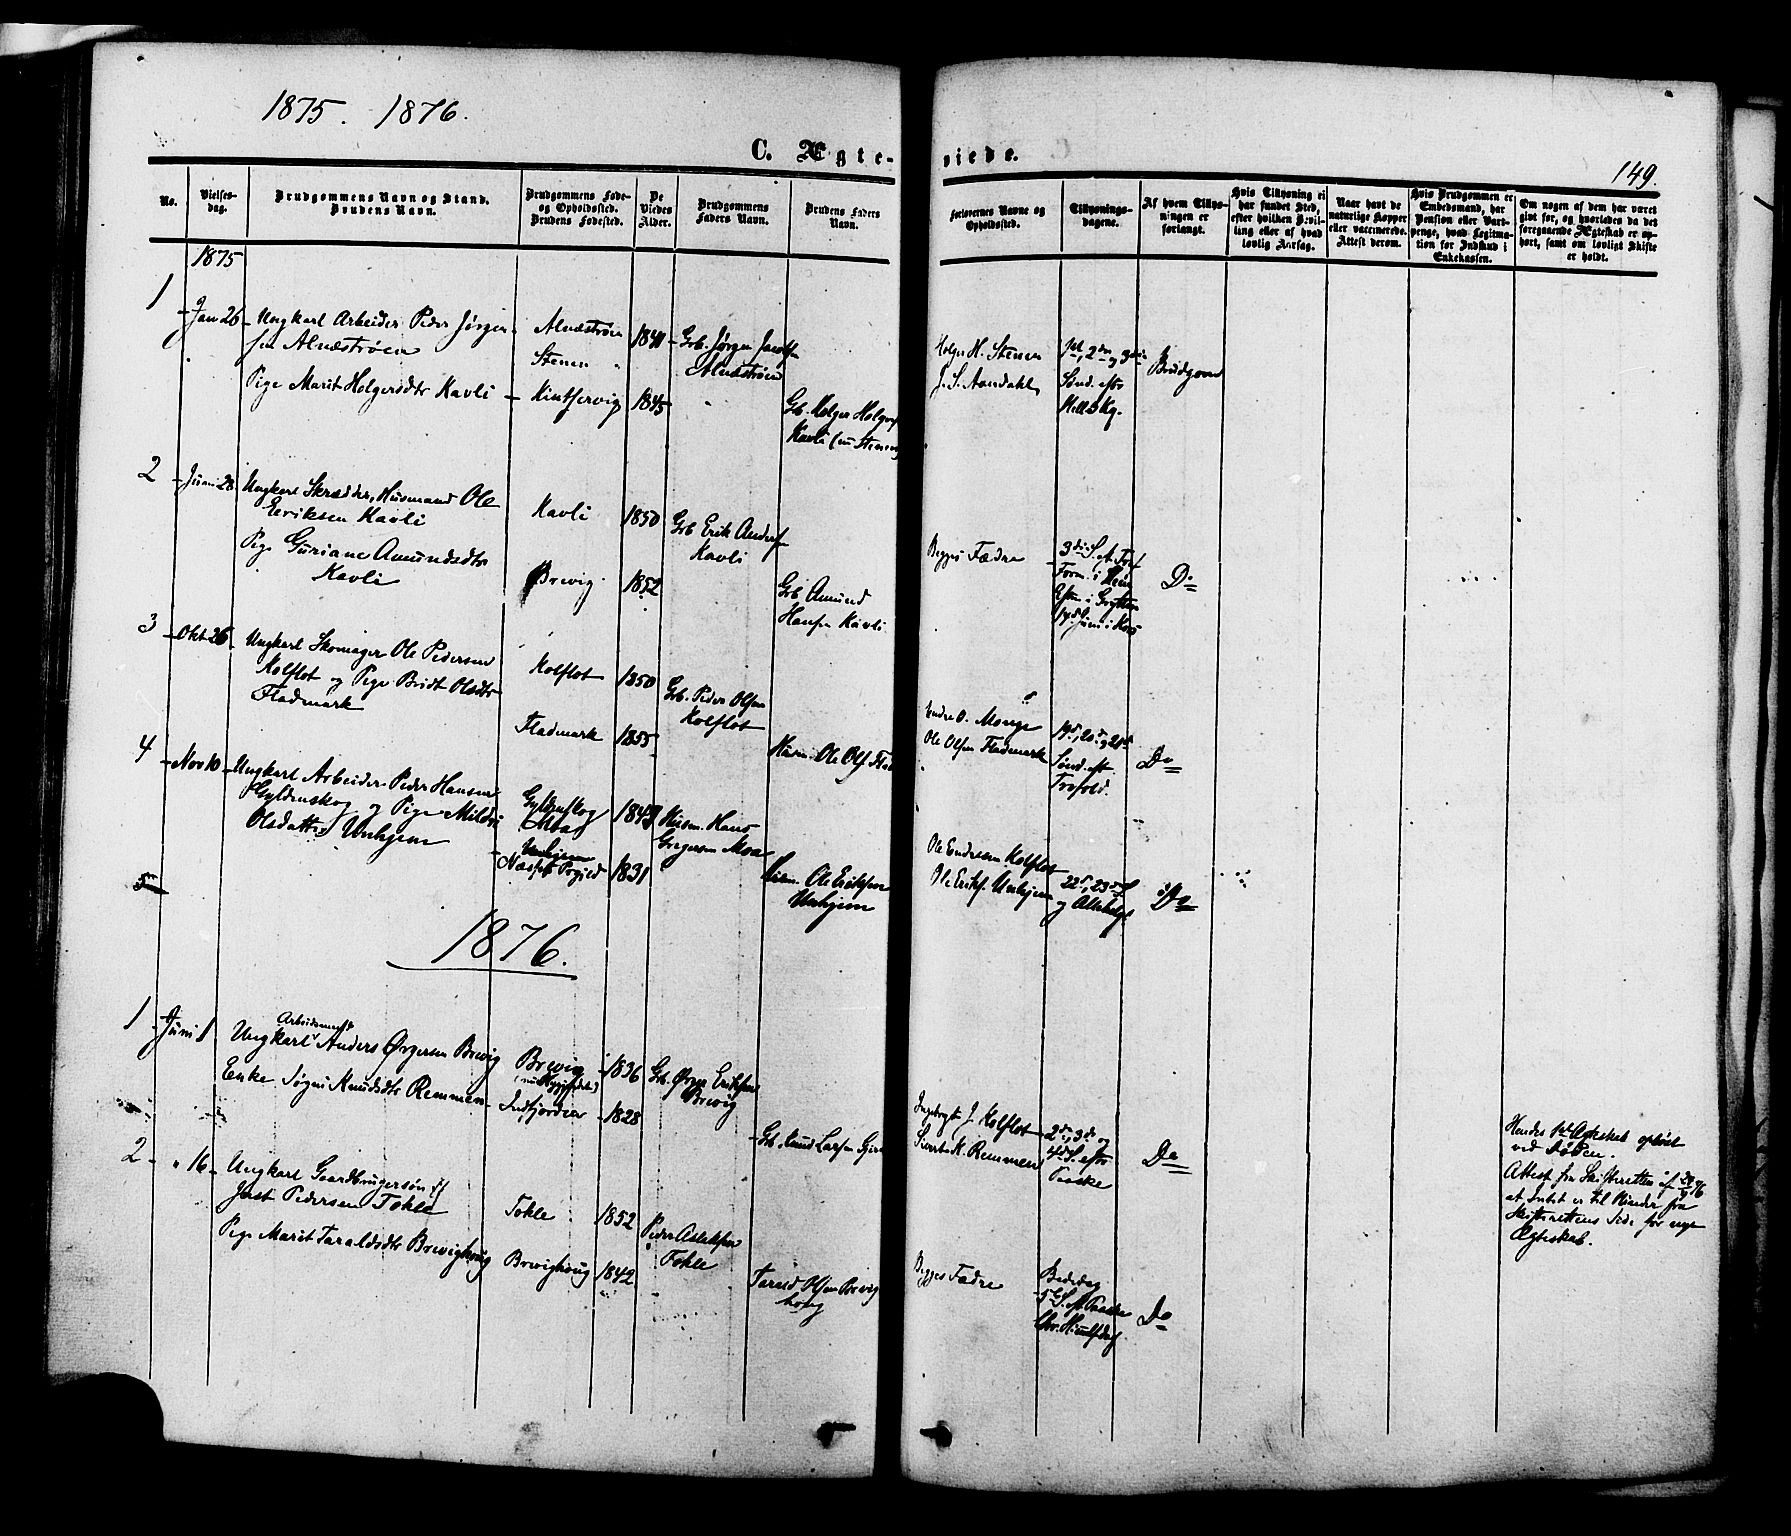 1875. 1876.
C. Ægteviede.
149.
No.
Vielses-
dag.
Brudgommens Navn og Stand.
Brudens Navn.
Brudgommens Føde-
og Opholdssted.
Brudens Fødested.
De
Viedes
Alder.
Brudgommens
Faders Navn.
Brudens Faders
Navn.
Forlovernes Navne og
Opholdssted.
Tillysnings-
dagene.
Af hvem Tillys-
ningen er
forlangt.
Hvis Tillysning ei
har fundet Sted,
efter hvilken Bevil-
ling eller af hvad
lovlig Aarsag.
Naar havt de
naturlige Kopper
eller vaccinerede.
Attest derom.
Hvis Brudgommen er
Embedsmand, har
Pension eller Vart-
penge, hvad Legitima-
tion for Indskud i
Enkekassen.
Om nogen af dem har været
gift før, og hvorledes da det
foregaaende Ægteskab er op-
hørt, samt om lovligt Skifte
er holdt.
1875
1
Jan 26
Ungkarl Arbeider Peder Jørgen-
sen Alnæstrøen
Pige Marit Holgersdtr Kavli
Alnæstrøen
Stenen
Kintservig
1841
1845
Gb. Jørgen
Alnæstrøen
Gb. Holger Holgers
Kavli (nu Stenen)
Holger H. Stenen
J. S. Aandahl
1ste, 2den og 3die
Sønd. efter
Hell 3 Kg.
Brudgom
2
Juni 28
Ungkarl Skrædder, Husmand Ole
Eriksen Kavli
Pige Guriane Amundsdtr
Kavli
Kavli
Brevig
1850
1852
Gb Erik Anders
Kavli
Gb Amund
Hansen Kavli
Begges Fædre
3die S. f. Tref
i Grytten
Do
3
Okt 26
Ungkarl Skomager Ole Pedersen
Kolflot og Pige Brit Olsdtr
Fladmark
Kolflot
Fladmark
1850
1855
Gb. Peder Olsen
Kolflot
Husm. Ole Ols Flad
Endre O. Monge
Ole Olsen Fladmark
19d, 20d og 21d
Sønd. eft.
Trefold.
Do
4
Nov 10
Ungkarl Arbeider Peder Hansen
Gyldenskog og Pige Mildri
Olsdatter Unhjem
Gyldenskog
Moa
Unhjem
Næssets Prgjeld
1843
1831
Husm. Hans
Gregersen Moa
Ole Eriksen
Unhjem
Ole Endresen Kolflot
Ole Eriks. Unhjem
22d, 23d S
og Allehelg.
Do
5
1876.
1
Juni 1
Arbeidsmand
Ungkarl Anders Ørgersen Brevig
Enke Søgni Knudsdtr Remmen
Brevig
Indfjorden
1836
1828
Gb. Ørger Eriksen
Brevig
Gb. Knud Larsen
Ingebrigt J. Kolflot
Sivert K. Remmen
2den, 3die og
4de S. efter
Paaske
Do
Hendes 1ste Ægteskab opløst
ved Døden.
Attest fra Skifteretten
at Intet er til Hinder fra
Skifterettens Side for nye
Ægteskab.
2
" 16
Ungkarl Gaardbrugersøn
Jost Pedersen Tokle
Pige Marit Taraldsdtr Brevighoug
Tokle
Brevighoug
1852
1842
Peder Aslaksen
Tokle
Tarald Olsen Brevig
houg
Begges Fædre
Bededag
5te S. f. Paaske
Chr. Himmelfdag
Do